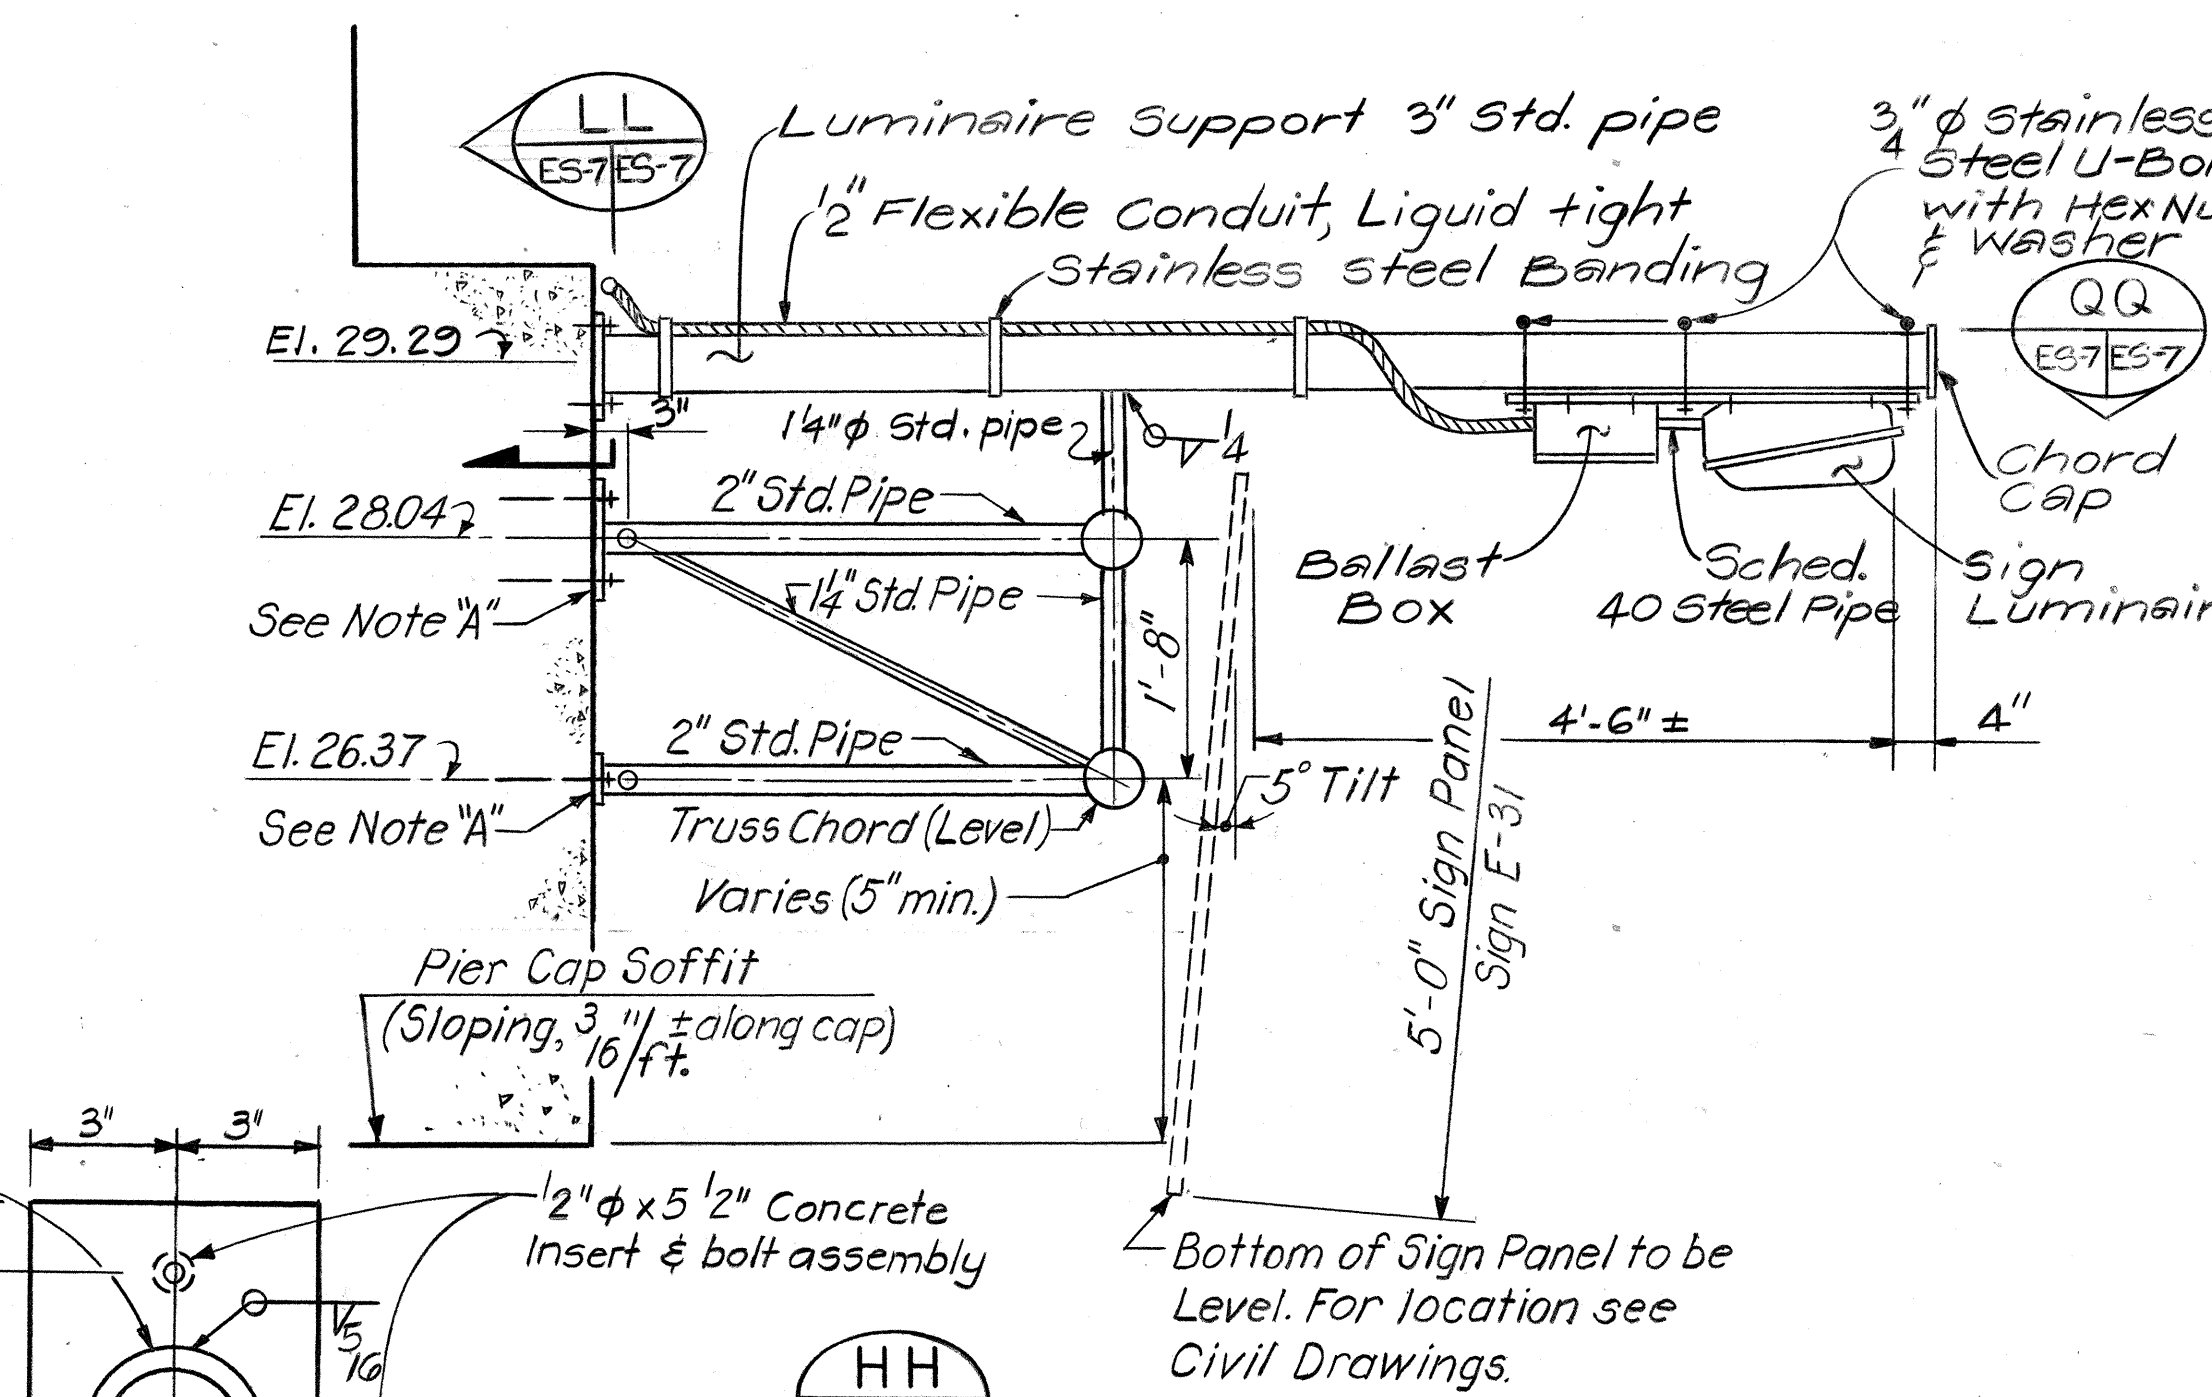 LL
ES-7 ES-7
Luminaire Support 3" Std. pipe
1/2" Flexible Conduit, Liguid tight
Stainless steel Banding
3/4" ϕ Stainless
Steel U-Bol
with Hex Nu
& Washer
QQ
ES-7 ES-7
El. 29.29
3"
1 1/4" ϕ Std. pipe
1/4
Chord
Cap
El. 28.04
2" Std. Pipe
See Note "A"
1 1/4" Std. Pipe
1'-8"
Ballast
Box
Sched.
40 Steel Pipe
Sign
Luminair
El. 26.37
2" Std. Pipe
See Note "A"
Truss Chord (Level)
Varies (5" min.)
5° Tilt
4'-6" ±
4"
5'-0" Sign Panel
Sign E-31
Pier Cap Soffit
(Sloping, 3/16"/ft. ± along cap)
3"
3"
1/2" ϕ x 5 1/2" Concrete
Insert & bolt assembly
5/16
HH
Bottom of Sign Panel to be
Level. For location see
Civil Drawings.